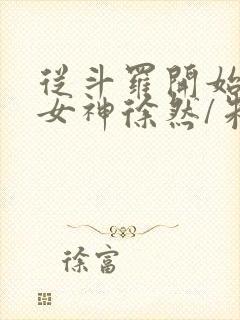 從斗羅開始
女神徐然/
徐富